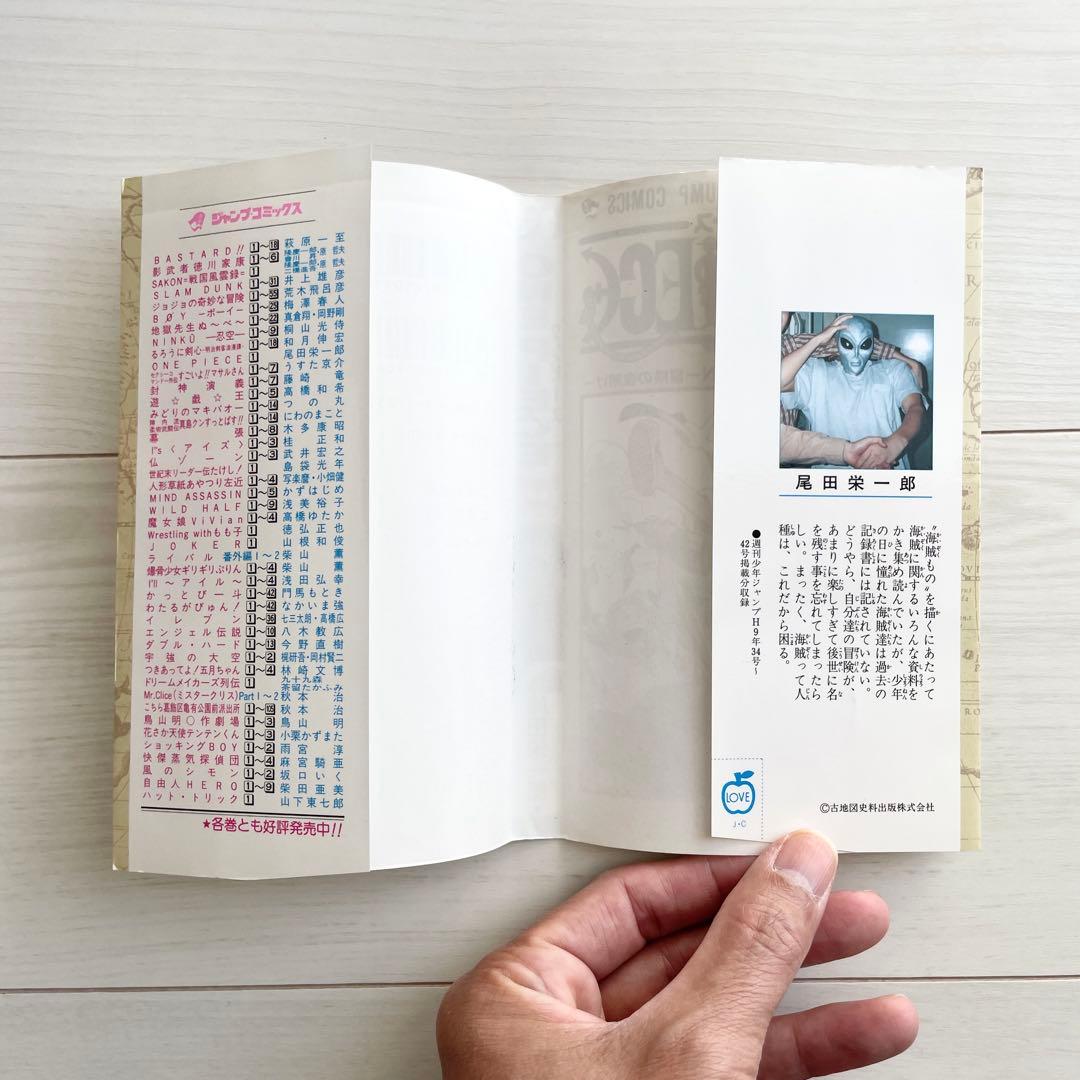 ジャンプコミックス
BASTARD!! 1〜18 萩原一至
影武者徳川家康 1〜6
SAKON=戦国風雲録= 1
SLAM DUNK 1〜31 井上雄彦
ジョジョの奇妙な冒険 荒木飛呂彦
BØY ―ボーイ― 梅澤春人
地獄先生ぬ〜べ〜 1〜22 真倉翔・岡野剛
NINKŪ ―忍空― 1〜9 桐山光侍
るろうに剣心 ―明治剣客浪漫譚― 1〜18 和月伸宏
ONE PIECE 1 尾田栄一郎
セクシーコマンドー外伝 すごいよ!!マサルさん 1〜7 うすた京介
封神演義 1〜7 藤崎竜
遊☆戯☆王 1〜5 高橋和希
みどりのマキバオー 1〜14 つの丸
陣内流柔術武闘伝 真島クンすっとばす!! 1〜14 にわのまこと
幕張 1〜8 木多康昭
I"s〈アイズ〉 1〜3 桂正和
仏ゾーン 1〜3 武井宏之
世紀末リーダー伝たけし! 1 島袋光年
人形草紙あやつり左近 1〜4 写楽麿・小畑健
MIND ASSASSIN 1〜5 かずはじめ
WILD HALF 1〜9 浅美裕子
魔女娘ViVian 1〜4 高橋ゆたか
Wrestling withもも子 1 徳弘正也
JOKER 1 山根和俊
ライバル 番外編1〜2 柴山薫
爆骨少女ギリギリぷりん 1〜4 柴山薫
I'll 〜アイル〜 1〜4 浅田弘幸
かっとび一斗 門馬もとき
わたるがぴゅん! 1〜42 なかいま強
イレブン 七三太朗・高橋広
エンジェル伝説 1〜10 八木教広
ダブル・ハード 1〜13 今野直樹
宇強の大空 1〜2 梶研吾・岡村賢二
つきあってよ!五月ちゃん 1〜4 林崎文博
ドリームメイカーズ列伝 1 九十九森 茶留たかふみ
Mr.Clice(ミスタークリス) Part 1〜2 秋本治
こちら葛飾区亀有公園前派出所 秋本治
鳥山明〇作劇場 1〜3 鳥山明
花さか天使テンテンくん 1〜3 小栗かずまた
ショッキングBOY 1〜2 雨宮淳
快傑蒸気探偵団 1〜4 麻宮騎亜
風のシモン 1〜2 坂口いく
自由人HERO 1〜9 柴田亜美
ハット・トリック 1 山下東七郎
★各巻とも好評発売中!!
尾田栄一郎
"海賊もの"を描くにあたって
海賊に関するいろんな資料を
かき集め読んでいたが、少年
の日に憧れた海賊達は過去の
記録書には記されていない。
どうやら、自分達の冒険が、
あまりに楽しすぎて後世に名
を残す事を忘れてしまったら
しい。まったく、海賊って人
種は、これだから困る。
●週刊少年ジャンプH9年34号〜
42号掲載分収録
LOVE
J・C
©古地図史料出版株式会社